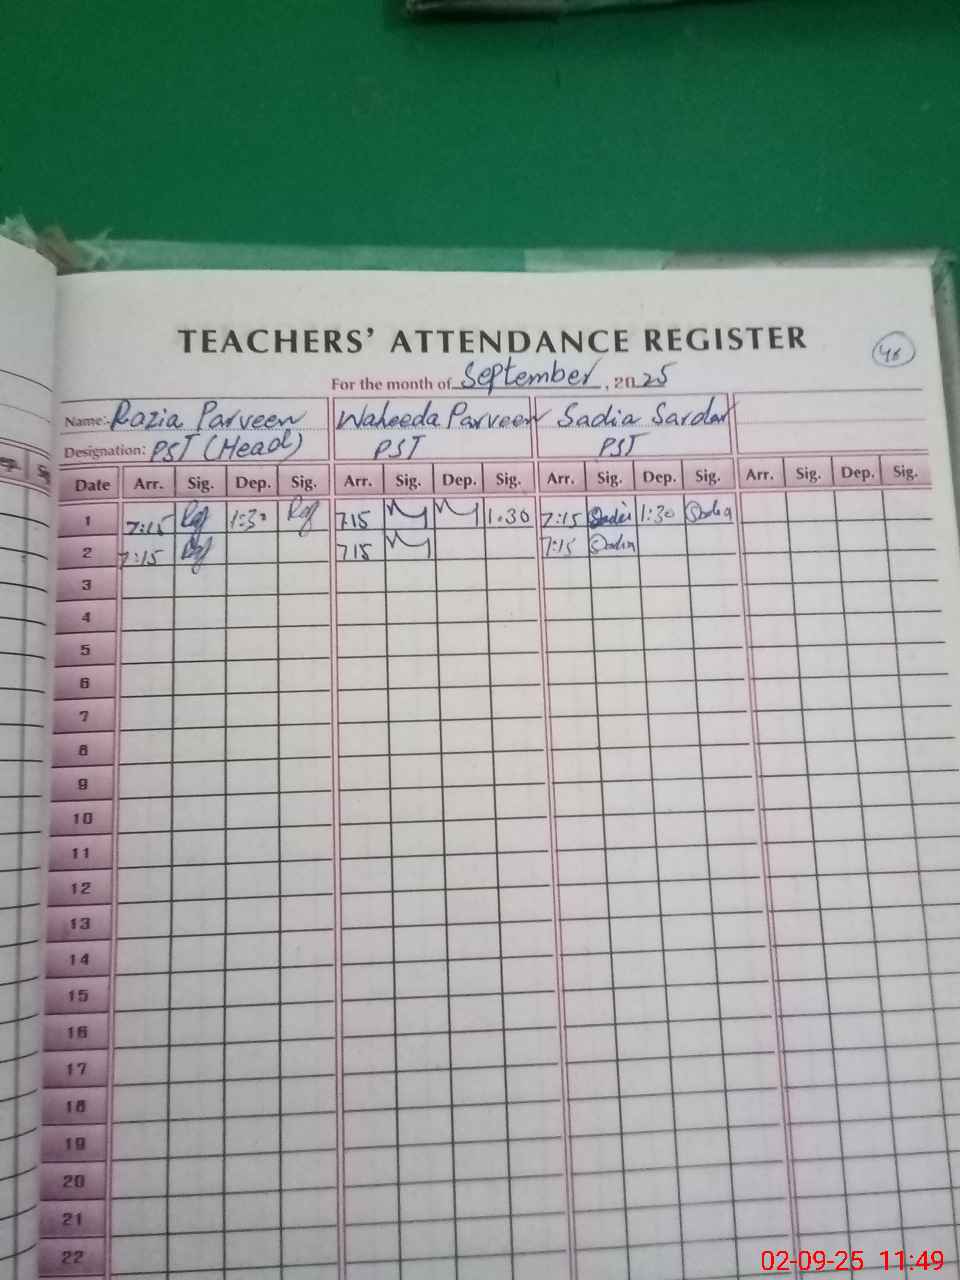 TEACHERS' ATTENDANCE REGISTER
46
For the month of September, 2025
Name:- Razia Parveen Waheeda Parveen Sadia Sardar
Designation: PST (Head) PST PST
ep. Sig
Date Arr. Sig. Dep. Sig. Arr. Sig. Dep. Sig. Arr. Sig. Dep. Sig. Arr. Sig. Dep. Sig.
1 7:15 1:30 7.15 1.30 7:15 Sadia 1:30 Sadia
2 7:15 7.15 7:15 Sadia
3
4
5
6
7
8
9
10
11
12
13
14
15
16
17
18
19
20
21
22
02-09-25 11:49